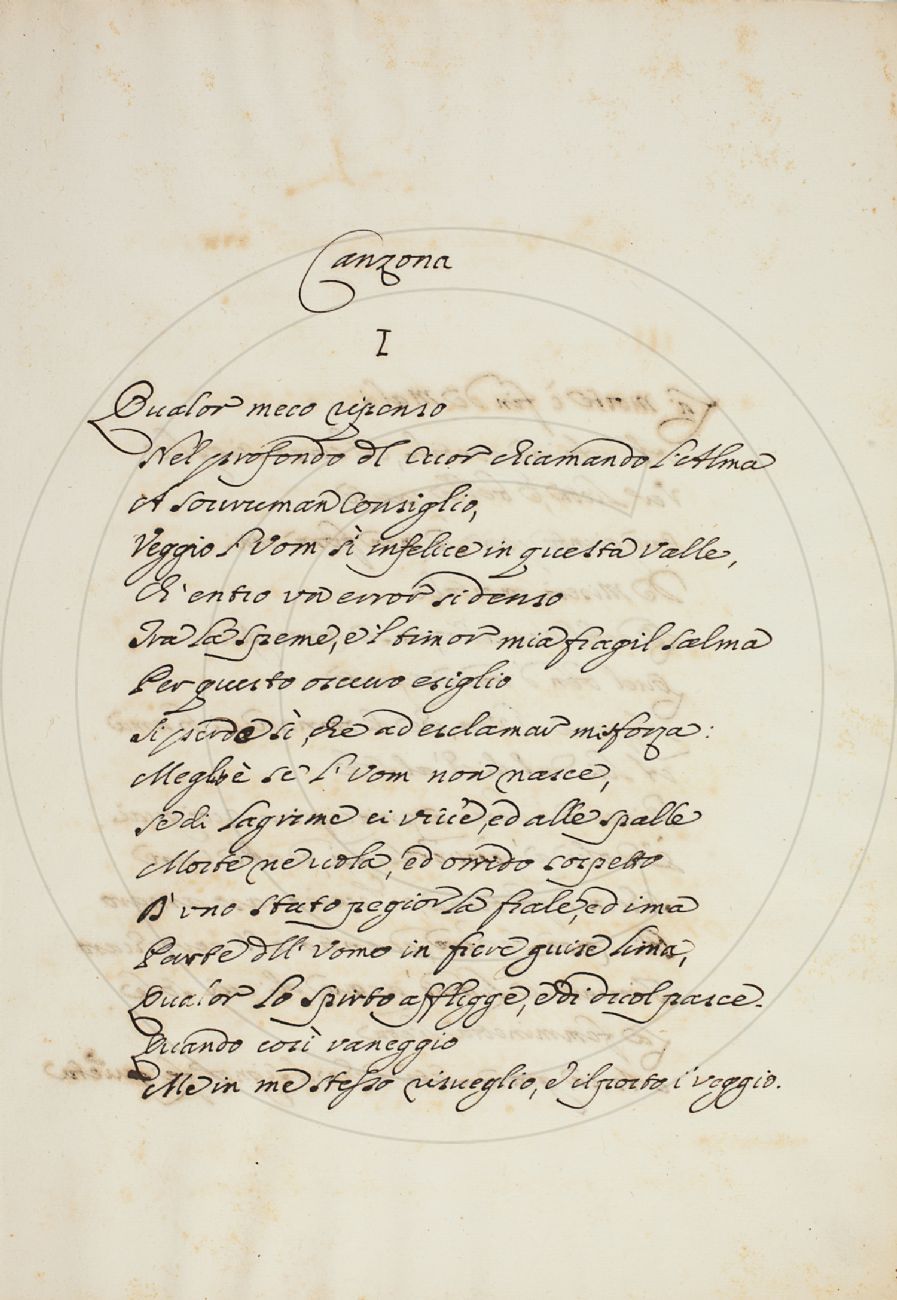 Canzona
I
Qualor meco ripenso
Nel profondo dl Cuor chiamando l'Alma
A sovruman Consiglio,
Veggio l'Vom sì infelice in questa valle,
Ch'entro vn error sì denso
Tra la speme, e 'l timor mia fragil salma
Per questo oscuro esiglio
Si perde sì, che ad esclamar mi sforza:
Meglio è se l'Vom non nasce,
Se di lagrime ei vive, ed alle spalle
Morte ne vola, ed orrido sospetto
D'vno stato pegior la frale, ed ima
Parte dll'Vomo in fiere guise lima,
Qualor lo spirto affligge, e di duol pasce.
Quando così vaneggio
Me in me stesso risveglio, e il porto i' veggio.